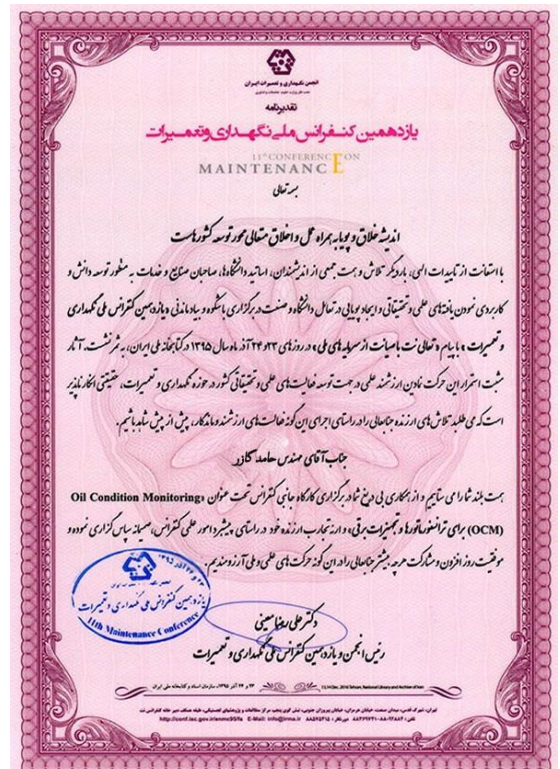 انجمن نگهداری و تعمیرات ایران
تقدیرنامه
یازدهمین کنفرانس ملی نگهداری وتعمیرات
11th CONFERENCE ON
MAINTENANCE
بسمه تعالی
اندیشه خلاق و پویا به همراه عمل و اخلاق متعالی محور توسعه کشورهاست
با استعانت از تاییدات الهی، بار دیگر تلاش و همت جمعی از اندیشمندان، اساتید دانشگاه‌ها، صاحبان صنایع و خدمات به منظور توسعه دانش و
کاربردی نمودن یافته‌های علمی و تحقیقاتی و ایجاد پویایی در تعامل دانشگاه و صنعت در برگزاری باشکوه و بیاد ماندنی «یازدهمین کنفرانس ملی نگهداری
و تعمیرات» با پیام «تعالی نت با صیانت از سرمایه های ملی» در روزهای ۲۳ و ۲۴ آذر ماه سال ۱۳۹۵ در کتابخانه ملی ایران، به ثمر نشست. آثار
مثبت استمرار این حرکت نمادن ارزشمند علمی در جهت توسعه فعالیت های علمی و تحقیقاتی کشور در حوزه نگهداری و تعمیرات، حقیقتی انکار ناپذیر
است که می طلبد تلاش های ارزنده جنابعالی را در راستای اجرای این گونه فعالیت های ارزشمند و ماندگار، بیش از پیش شاهد باشیم.
جناب آقای مهندس حامد گازر
همت بلند شما را می ستاییم و از همکاری بی دریغ شما در برگزاری کارگاه جانبی کنفرانس تحت عنوان «Oil Condition Monitoring
(OCM) برای ترانسفورماتورها و تجهیزات برقی» و ارائه تجارب ارزنده خود در راستای پیشبرد امور علمی کنفرانس، صمیمانه سپاس گزاری نموده و
موفقیت روز افزون و مشارکت هرچه بیشتر جنابعالی را در این گونه حرکت های علمی و ملی آرزومندیم.
۲۳ و ۲۴ آذر ۱۳۹۵
یازدهمین کنفرانس ملی نگهداری و تعمیرات
11th Maintenance Conference
دکتر علی رضا معینی
رئیس انجمن و یازدهمین کنفرانس ملی نگهداری و تعمیرات
۲۳ و ۲۴ آذر ۱۳۹۵، سازمان اسناد و کتابخانه ملی ایران
13,14 Dec, 2016 Tehran, National Library and Archive of Iran